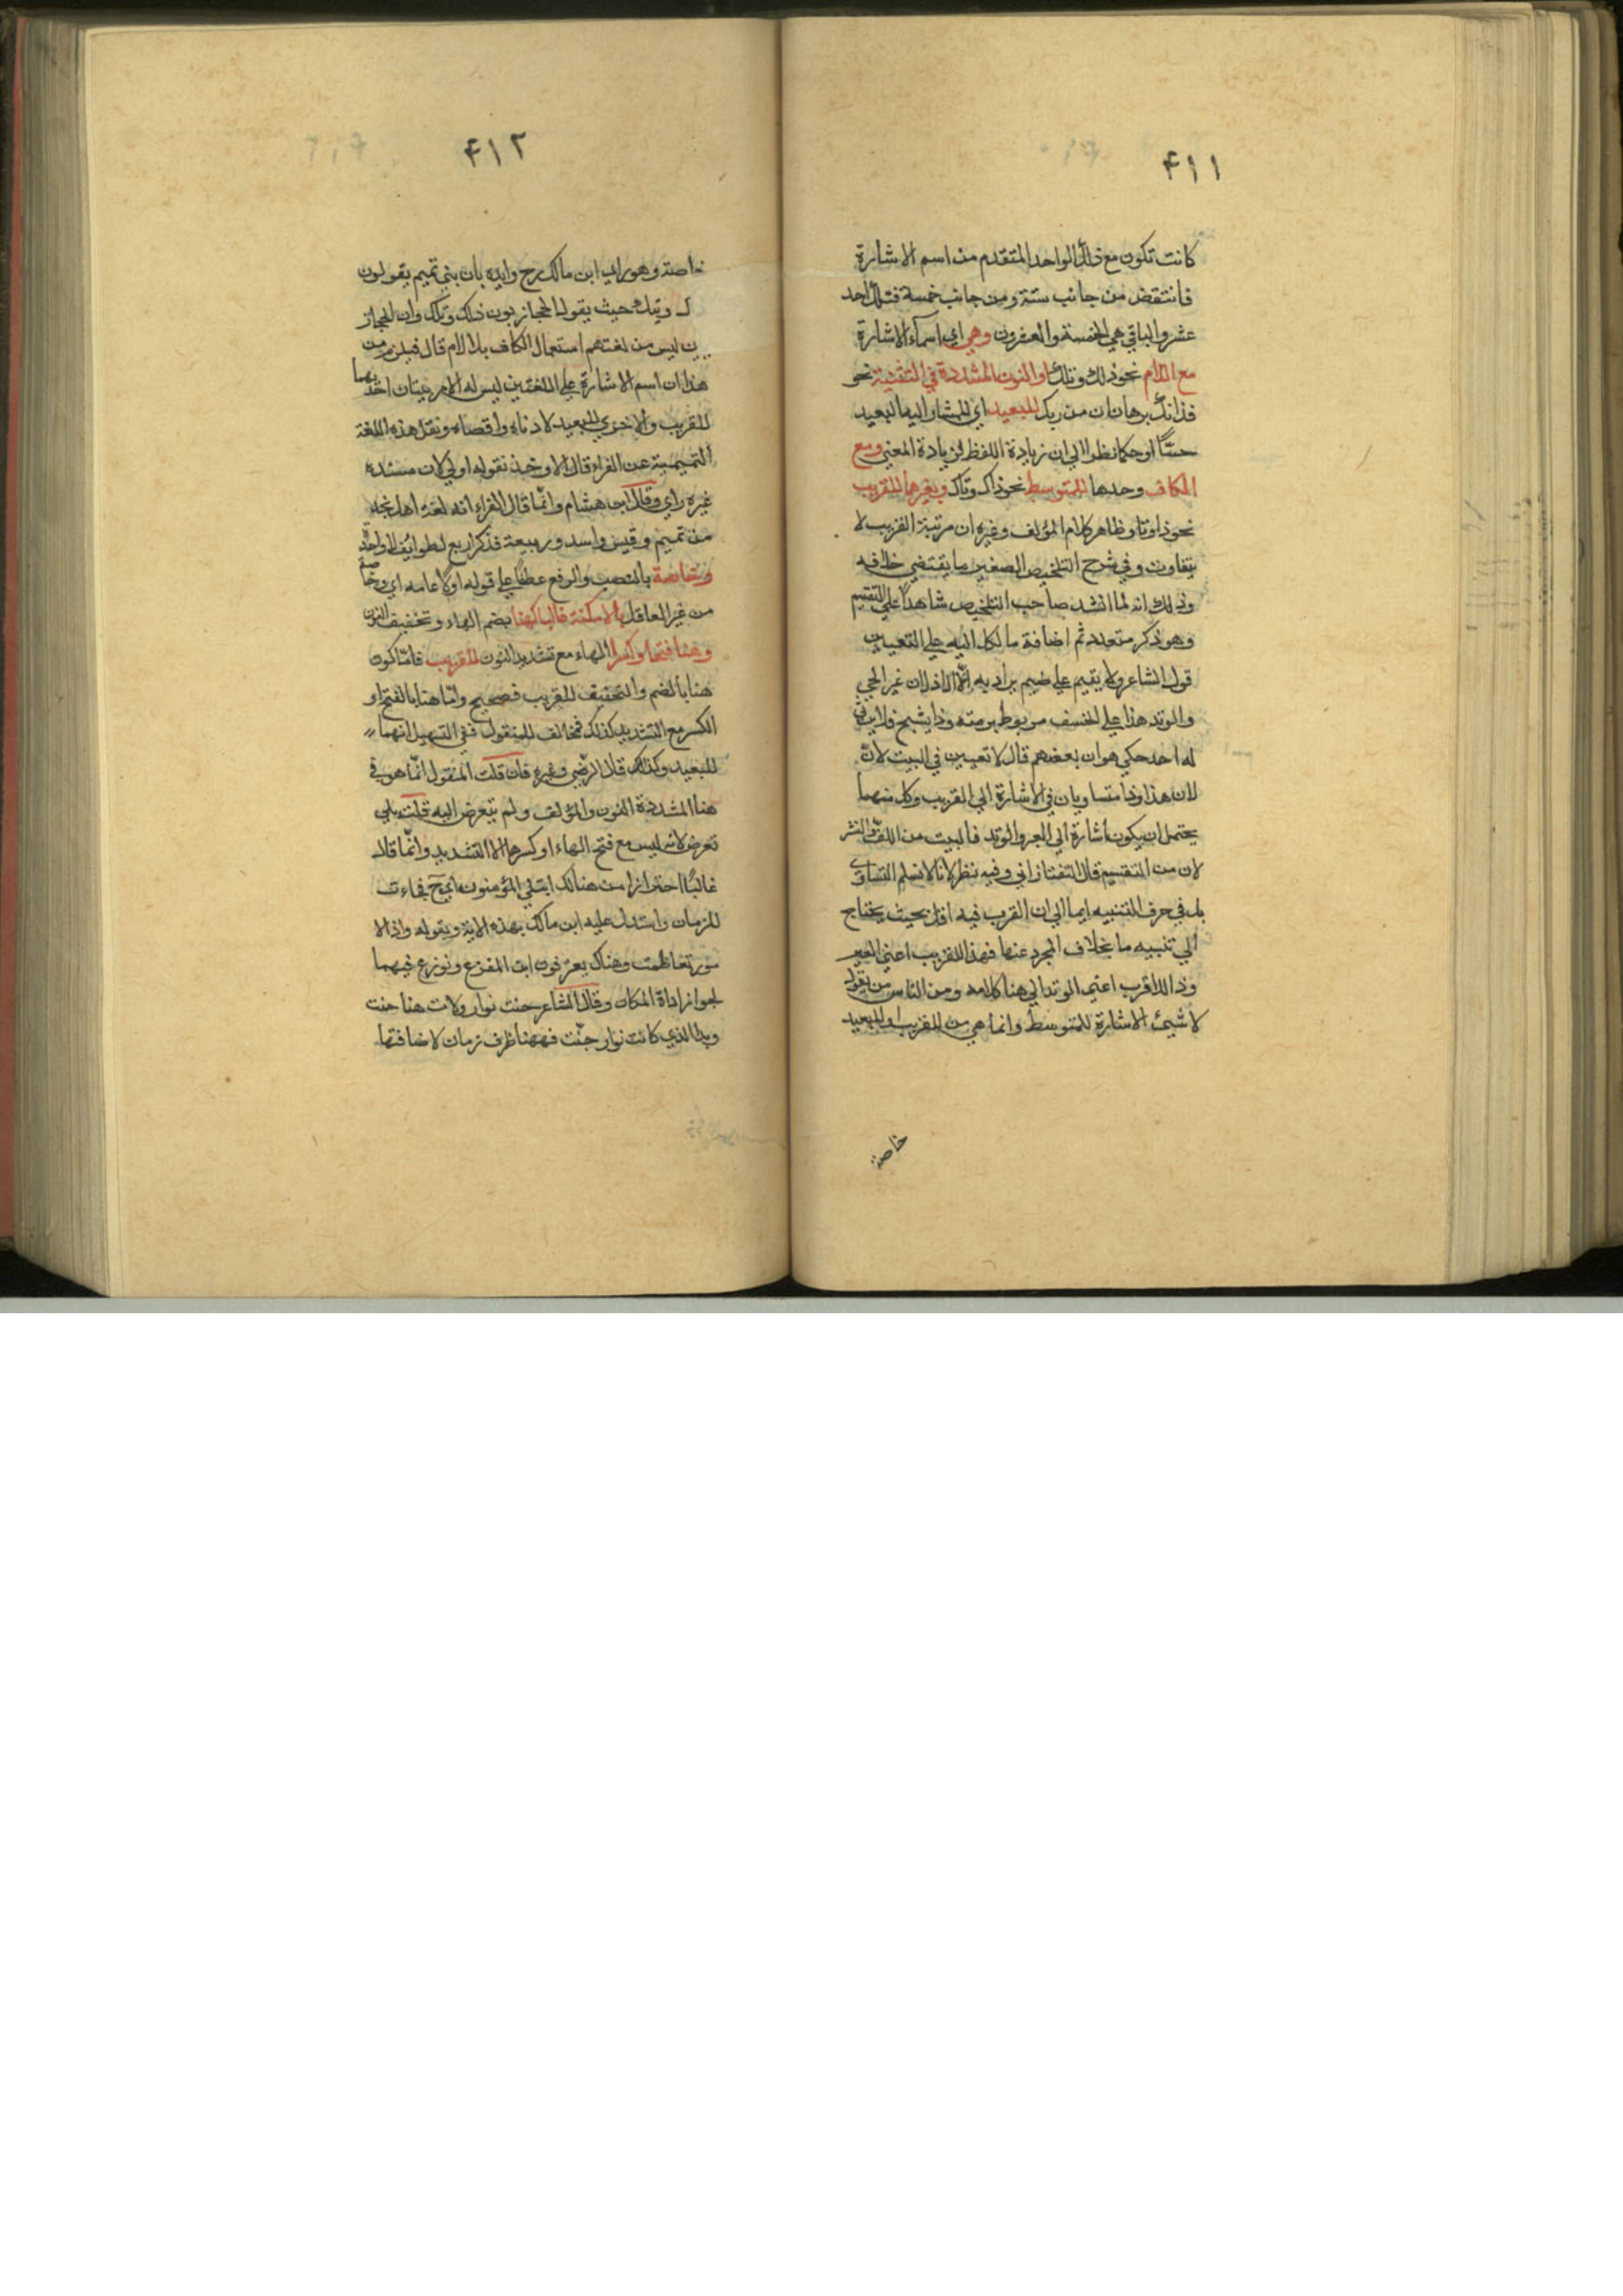 ٤١١
كانت تكون مع ذلك الواحد المتقدم من اسم الاشارة
فانتقض من جانب ستة ومن جانب خمسة فتلك احد
عشر والباقي هي الخمسة والعشرون وهي اي اسماء الاشارة
مع اللام نحو ذلك وتلك او النون المشددة في التثنية نحو
فذانك برهانان من ربك للبعيد اي للمشار اليه البعيد
حسًّا او حكما نظرا الي ان زيادة اللفظ لزيادة المعني ومع
الكاف وحدها للمتوسط نحو ذاك وتاك وبغيرها للقريب
نحو ذا وتا وظاهر كلام المؤلف وغيره ان مرتبة القريب لا
يتفاوت وفي شرح التلخيص الصغير ما يقتضي خلافه
وذلك انه لما انشد صاحب التلخيص شاهداً علي التقسيم
وهو ذكر متعدد ثم اضافة ما لكل اليه علي التعيين
قول الشاعر ولا يقيم علي ضيم يراد به الّا الاذلان عير الحي
والوتد هذا علي الخسف مربوط برمته وذا يشج فلا يرثي
له احد حكي هو ان بعضهم قال لا تعيين في البيت لانّ
لان هذا وذا متساويان في الاشارة الي القريب وكل منهما
يحتمل ان يكون اشارة الي العير والوتد فالبيت من اللفّ والنشر
لان من التقسيم قال التفتازاني وفيه نظر لانا لا نسلم التساوي
بل في حرف التنبيه ايما الي ان القرب فيه اقل بحيث يحتاج
الي تنبيه ما بخلاف المجرد عنها فهذا للقريب اعني العير
وذا للاقرب اعني الوتد الي هنا كلامه ومن الناس من يقول
لا شيئ الاشارة للمتوسط وانما هي من للقريب او للبعيد
خاصة
٤١٢
خاصة وهو راي ابن مالك رح وايده بان بني تميم يقولون
وتيك حيث يقول الحجازيون ذلك وتلك وان الحجاز
ين ليس من لغتهم استعمال الكاف بلا لام قال فيلزم من
هذا ان اسم الاشارة علي اللغتين ليس له الا مرتبتان احديهما
للقريب والاخري للبعيد لادناه واقصاه ونقل هذه اللغة
التميمية عن الفراء قال الا وخذ نقوله اولي لان مسنده
غيره راي وقال ابن هشام وانّما قال الفراء انه لغة اهل نجد
من تميم وقيس واسد وربيعة فذكر اربع طوايف لا واحدة
وخاصة بالنصب والرفع عطفًا علي قوله اولا عامه اي وخاصة
من غير العاقل بالامكنة غالبا كهنا بضم الهاء وتخفيف النون
وهنا فتحا وكسرا الهاء مع تشديد النون للقريب فامّا كون
هنا بالضم والتخفيف للقريب فصحيح وامّا هنا بالفتح او
الكسر مع التشديد كذلك فمخالف للمنقول ففي التسهيل انهما
للبعيد وكذلك قال الرضي وغيره فان قلت المنقول انّما هو في
هنا المشددة النون والمؤلف ولم يتعرض اليه قلت بلي
تعرض لانه ليس مع فتح الهاء او كسرها الا التشديد وانّما قال
غالبًا احترازا من هنالك ابتلي المؤمنون فجاءت
للزمان واستدل عليه ابن مالك بهذه الاية وبقوله واذا الا
مور تعاظمت وهناك يعترفون اين المفزع ونوزع فيهما
لجواز ارادة المكان وقال الشاعر حنت نوار ولات هنا حنت
وبدا الذي كانت نوار جنّت فههنا ظرف زمان لاضافتها